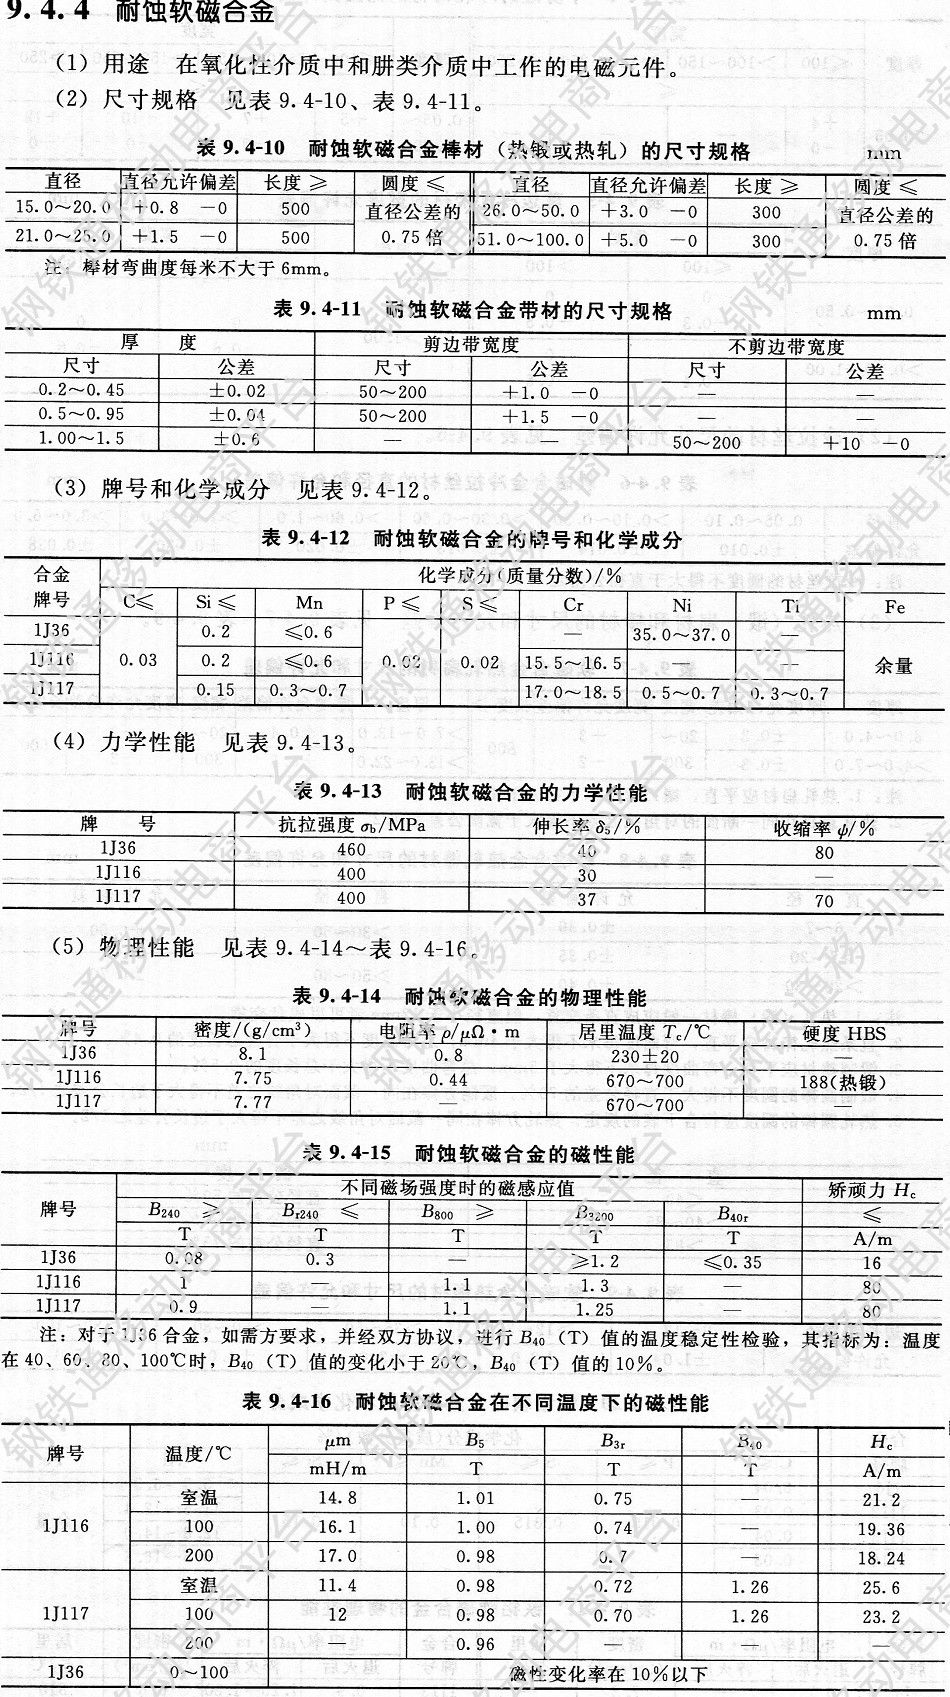 9.4.4 耐蚀软磁合金
(1) 用途 在氧化性介质中和肼类介质中工作的电磁元件。
(2) 尺寸规格 见表 9.4-10、表 9.4-11。
表 9.4-10 耐蚀软磁合金棒材（热锻或热轧）的尺寸规格 mm
直径 直径允许偏差 长度 ≥ 圆度 ≤ 直径 直径允许偏差 长度 ≥ 圆度 ≤
15.0～20.0 +0.8 -0 500 直径公差的 26.0～50.0 +3.0 -0 300 直径公差的
21.0～25.0 +1.5 -0 500 0.75 倍 51.0～100.0 +5.0 -0 300 0.75 倍
注：棒材弯曲度每米不大于 6mm。
表 9.4-11 耐蚀软磁合金带材的尺寸规格 mm
厚 度 剪边带宽度 不剪边带宽度
尺寸 公差 尺寸 公差 尺寸 公差
0.2～0.45 ±0.02 50～200 +1.0 -0 — —
0.5～0.95 ±0.04 50～200 +1.5 -0 — —
1.00～1.5 ±0.6 — — 50～200 +10 -0
(3) 牌号和化学成分 见表 9.4-12。
表 9.4-12 耐蚀软磁合金的牌号和化学成分
合金 化学成分(质量分数)/%
牌号 C≤ Si ≤ Mn P ≤ S ≤ Cr Ni Ti Fe
1J36 0.2 ≤0.6 — 35.0～37.0 —
1J116 0.03 0.2 ≤0.6 0.02 0.02 15.5～16.5 — — 余量
1J117 0.15 0.3～0.7 17.0～18.5 0.5～0.7 0.3～0.7
(4) 力学性能 见表 9.4-13。
表 9.4-13 耐蚀软磁合金的力学性能
牌 号 抗拉强度 σb/MPa 伸长率 δ5/% 收缩率 ψ/%
1J36 460 40 80
1J116 400 30 —
1J117 400 37 70
(5) 物理性能 见表 9.4-14～表 9.4-16。
表 9.4-14 耐蚀软磁合金的物理性能
牌号 密度/(g/cm³) 电阻率 ρ/μΩ·m 居里温度 Tc/℃ 硬度 HBS
1J36 8.1 0.8 230±20 —
1J116 7.75 0.44 670～700 188(热锻)
1J117 7.77 — 670～700 —
表 9.4-15 耐蚀软磁合金的磁性能
不同磁场强度时的磁感应值 矫顽力 Hc
牌号 B240 ≥ Br240 ≤ B800 ≥ B3200 B40r ≤
T T T T T A/m
1J36 0.08 0.3 — ≥1.2 ≤0.35 16
1J116 1 — 1.1 1.3 — 80
1J117 0.9 — 1.1 1.25 — 80
注：对于 1J36 合金，如需方要求，并经双方协议，进行 B40（T）值的温度稳定性检验，其指标为：温度
在 40、60、80、100℃时，B40（T）值的变化小于 20℃，B40（T）值的 10%。
表 9.4-16 耐蚀软磁合金在不同温度下的磁性能
牌号 温度/℃ μm B5 B3r B40 Hc
mH/m T T T A/m
室温 14.8 1.01 0.75 — 21.2
1J116 100 16.1 1.00 0.74 — 19.36
200 17.0 0.98 0.7 — 18.24
室温 11.4 0.98 0.72 1.26 25.6
1J117 100 12 0.98 0.70 1.26 23.2
200 — 0.96 — — —
1J36 0～100 磁性变化率在 10%以下
钢铁通移动电商平台